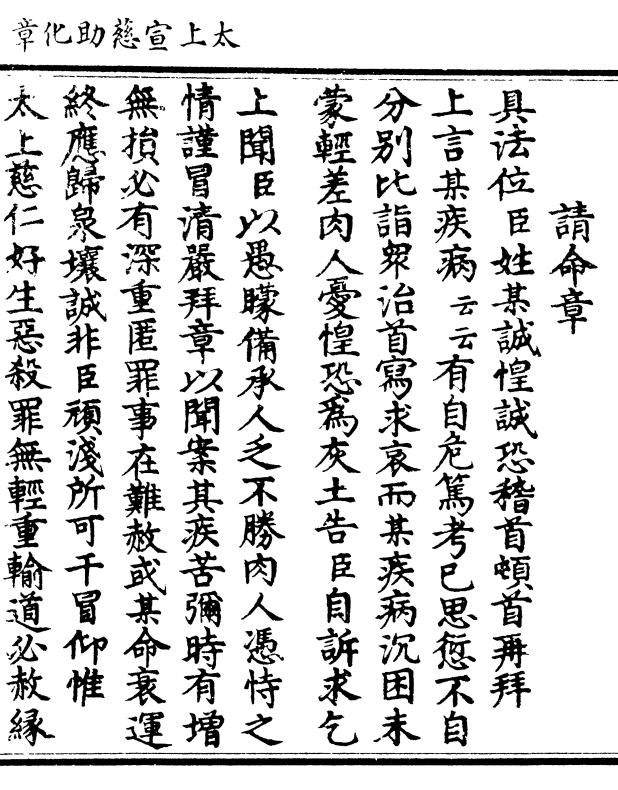 太上宣慈助化章
請命章
具法位臣姓某誠惶誠恐稽首頓首再拜
上言某疾病云云有自危篤考已思愆不自
分别比詣衆治首寫求哀而某疾病沉困未
蒙輕差肉人憂惶恐為灰土告臣自訴求乞
上聞臣以愚矇備承人乏不勝肉人憑恃之
情謹冒清嚴拜章以聞案其疾苦彌時有增
無損必有深重匿罪事在難赦或某命衰運
終應歸泉壤誠非臣頑淺所可干冒仰惟
太上慈仁好生惡殺罪無輕重輸道必赦縁